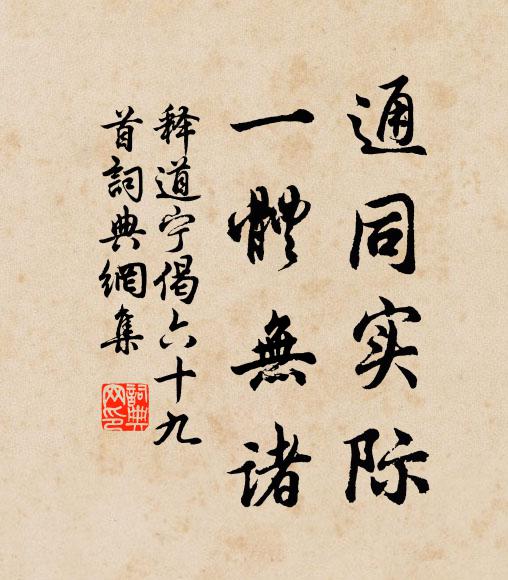 通同实际
一體無诸
释道宁偈六十九
首詞典網集
詞典
网印